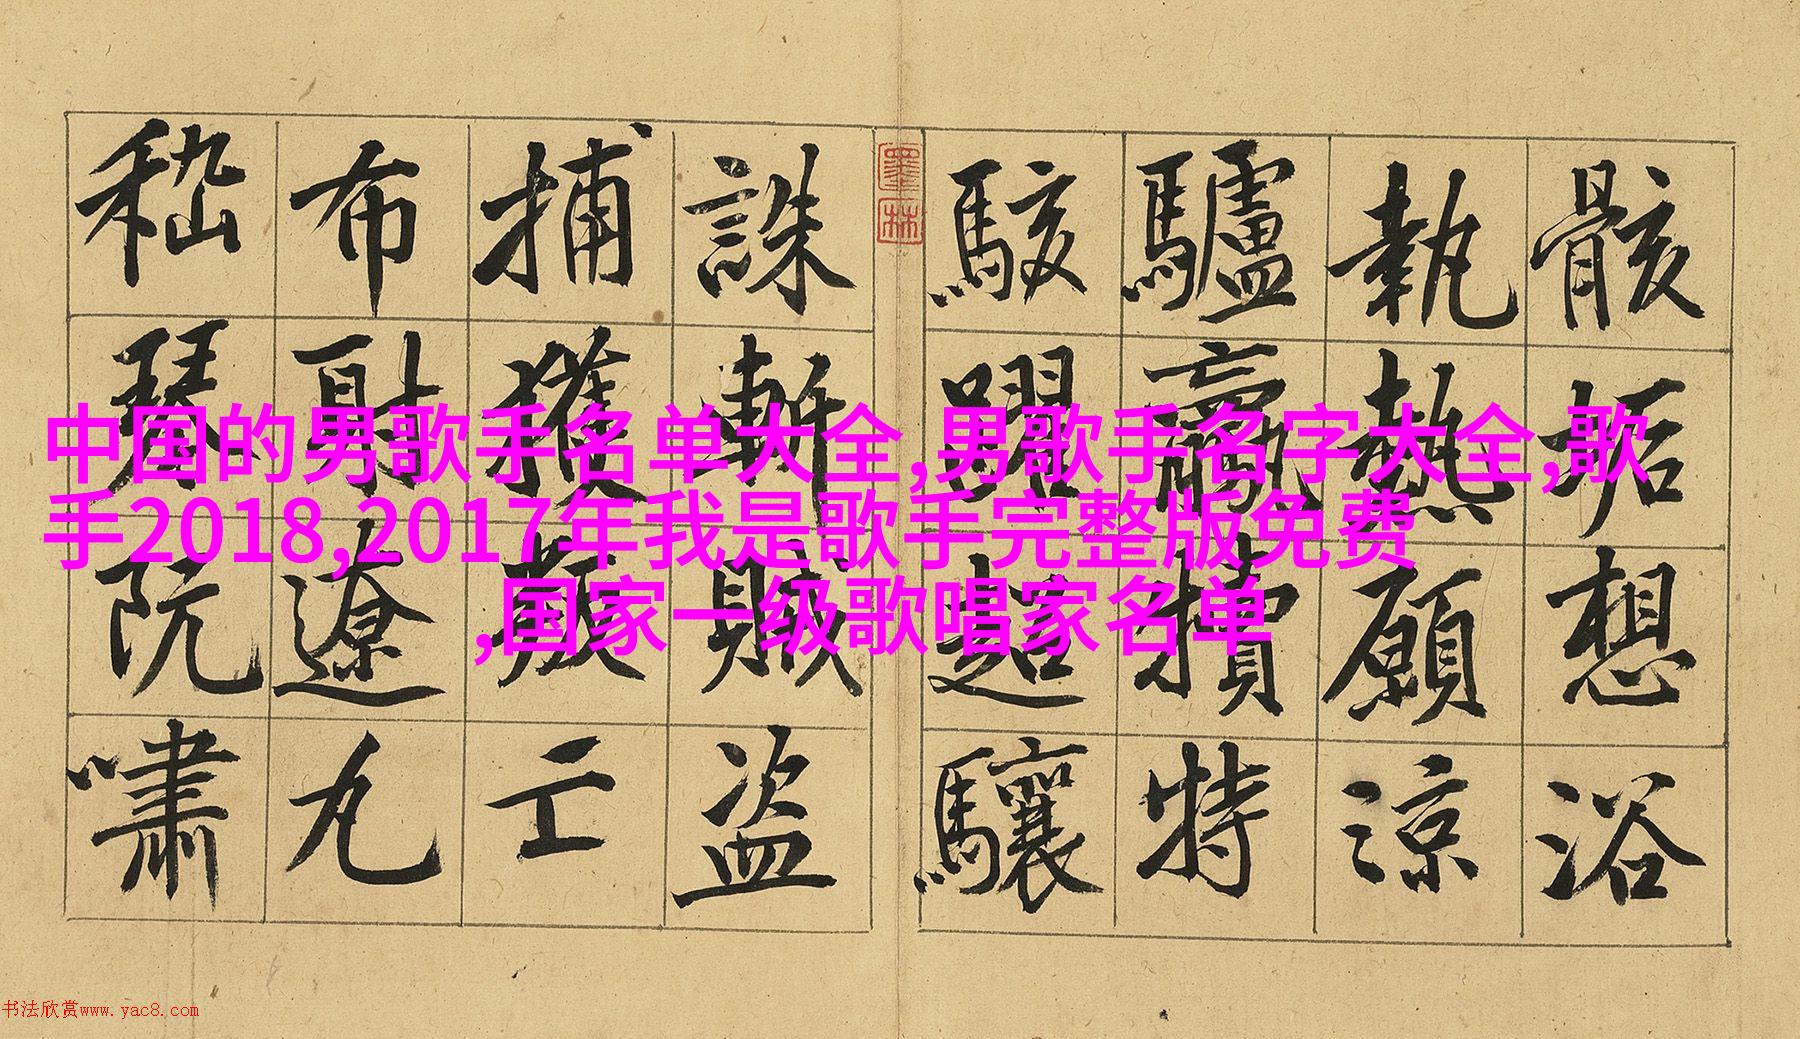 骸垢想浴
執熱願涼
驢驘犢特
駭躍超驤
誅斬賊盜
捕獲叛亡
布射遼丸
嵇琴阮嘯
墨林
中国的男歌手名单大全,男歌手名字大全,歌
手2018,2017年我是歌手完整版免费
,国家一级歌唱家名单
书法欣赏www.yac8.com